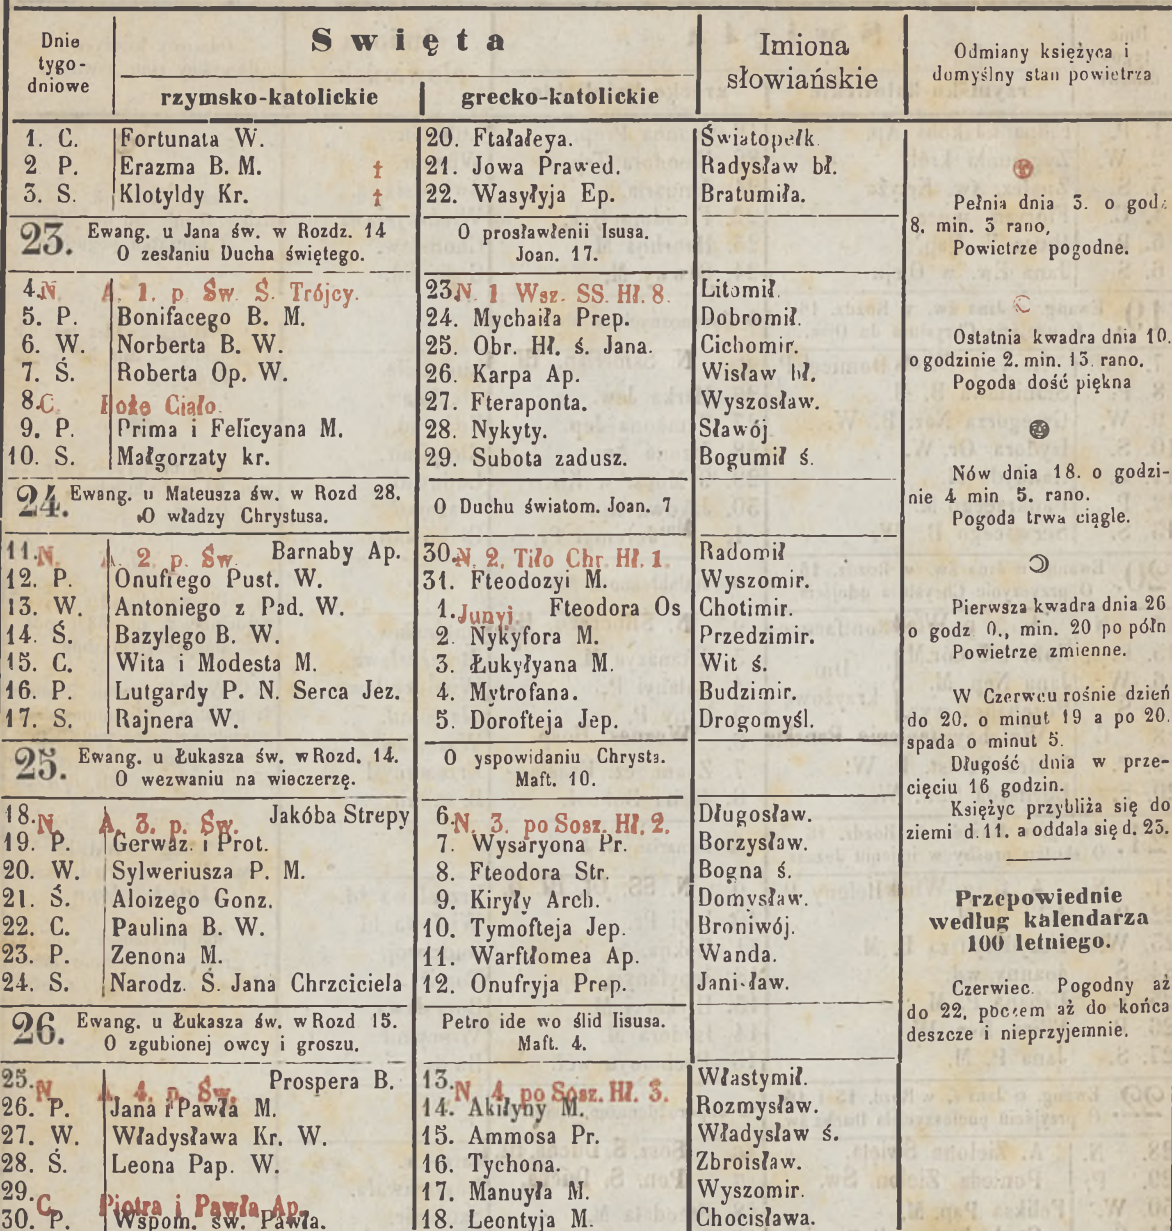 Dnie
tygo-
dniowe
Swięta
rzymsko-katolickie
grecko-katolickie
Imiona
słowiańskie
Odmiany księżyca i
domyślny stan powietrza
1. C. Fortunata W. 20. Ftałałeya. Światopełk
2 P. Erazma B. M. † 21. Jowa Prawed. Radysław bł.
3. S. Klotyldy Kr. † 22. Wasyłyja Ep. Bratumiła.
23. Ewang. u Jana św. w Rozdz. 14
O zesłaniu Ducha świętego.
O prosławłenii Isusa.
Joan. 17.
4. N. A. 1. p Św. Ś. Trójcy. 23. N. 1 Wsz. SS. Hł. 8. Litomił.
5. P. Bonifacego B. M. 24. Mychaiła Prep. Dobromił.
6. W. Norberta B. W. 25. Obr. Hł. ś. Jana. Cichomir.
7. Ś. Roberta Op. W. 26. Karpa Ap. Wisław bł.
8. C. Boże Ciało. 27. Fteraponta. Wyszosław.
9. P. Prima i Felicyana M. 28. Nykyty. Sławój
10. S. Małgorzaty kr. 29. Subota zadusz. Bogumił ś.
24. Ewang. u Mateusza św. w Rozd 28.
O władzy Chrystusa.
O Duchu światom. Joan. 7
11. N. A. 2. p. Św Barnaby Ap. 30. N. 2. Tiło Chr. Hł. 1. Radomił
12. P. Onufrego Pust. W. 31. Fteodozyi M. Wyszomir.
13. W. Antoniego z Pad. W. 1. Junyj. Fteodora Os Chotimir.
14. Ś. Bazylego B. W. 2. Nykyfora M. Przedzimir.
15. C. Wita i Modesta M. 3. Łukyłyana M. Wit ś.
16. P. Lutgardy P. N. Serca Jez. 4. Mytrofana. Budzimir.
17. S. Rajnera W. 5. Dorofteja Jep. Drogomyśl.
25. Ewang. u Łukasza św. w Rozd. 14.
O wezwaniu na wieczerzę.
O yspowidaniu Chrysta.
Maft. 10.
18. N. A. 3. p. Św. Jakóba Strepy 6. N. 3. po Sosz. Hł. 2. Długosław.
19. P. Gerwaz. i Prot. 7. Wysaryona Pr. Borzysław.
20. W. Sylweriusza P. M. 8. Fteodora Str. Bogna ś.
21. Ś. Aloizego Gonz. 9. Kiryły Arch. Domysław.
22. C. Paulina B. W. 10. Tymofteja Jep. Broniwój.
23. P. Zenona M. 11. Warftłomea Ap. Wanda.
24. S. Narodz. Ś. Jana Chrzciciela 12. Onufryja Prep. Janisław.
26. Ewang. u Łukasza św. w Rozd 15.
O zgubionej owcy i groszu.
Petro ide wo ślid Iisusa.
Maft. 4.
25. N. A. 4. p. Św. Prospera B. 13. N. 4. po Sosz. Hł. 3. Włastymił.
26. P. Jana i Pawła M. 14. Akiłyny M. Rozmysław.
27. W. Władysława Kr. W. 15. Ammosa Pr. Władysław ś.
28. Ś. Leona Pap. W. 16. Tychona. Zbroisław.
29. C. Piotra i Pawła Ap. 17. Manuyła M. Wyszomir.
30. P. Wspom. św. Pawła. 18. Leontyja M. Chocisława.
Pełnia dnia 3. o godz.
8. min. 3 rano,
Powietrze pogodne.
Ostatnia kwadra dnia 10.
o godzinie 2. min. 13. rano.
Pogoda dość piękna
Nów dnia 18. o godzi-
nie 4 min 5. rano.
Pogoda trwa ciągle.
Pierwsza kwadra dnia 26
o godz 0., min. 20 po półn
Powietrze zmienne.
W Czerwcu rośnie dzień
do 20. o minut 19 a po 20.
spada o minut 5.
Długość dnia w prze-
cięciu 16 godzin.
Księżyc przybliża się do
ziemi d. 11. a oddala się d. 23.
Przepowiednie
według kalendarza
100 letniego.
Czerwiec. Pogodny aż
do 22, poczem aż do końca
deszcze i nieprzyjemnie.